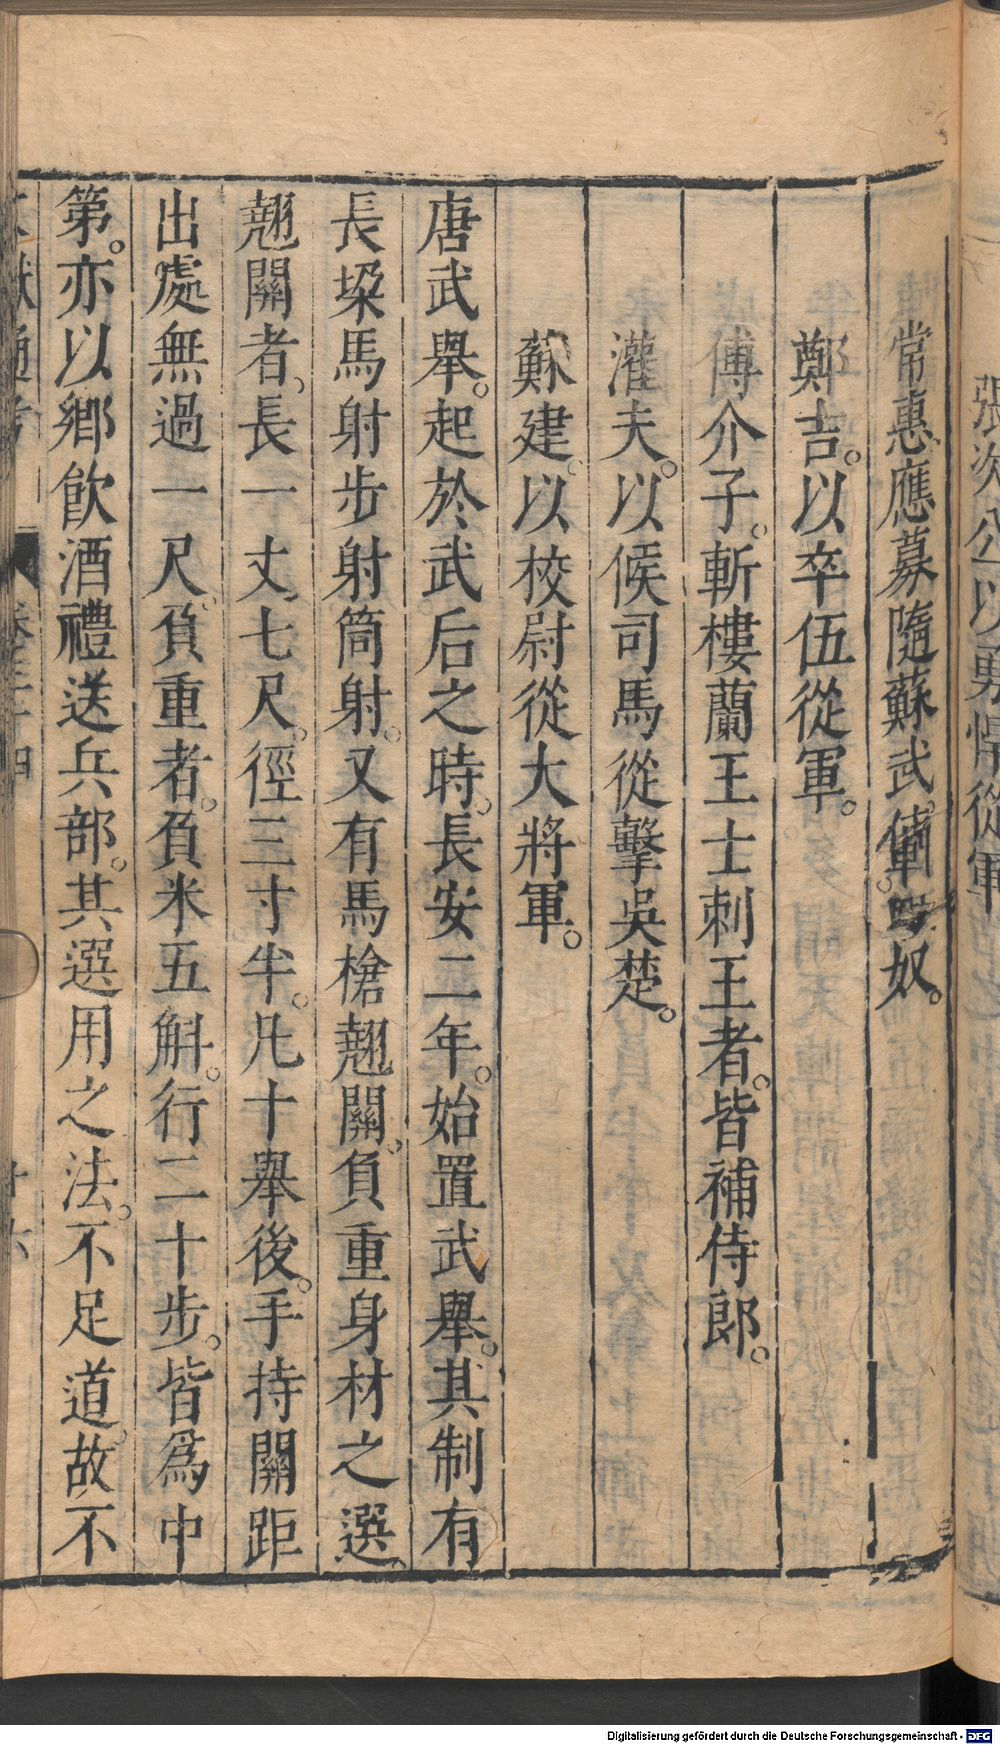 張次公以勇悍從軍
常惠應募隨蘇武使匈奴。
鄭吉。以卒伍從軍。
傅介子。斬樓蘭王士刺王者。皆補侍郎。
灌夫。以候司馬從擊吳楚。
蘇建。以校尉從大將軍。
唐武舉。起於武后之時。長安二年。始置武舉。其制有
長垜馬射步射筒射。又有馬槍翹關。負重身材之選。
翹關者。長一丈七尺。徑三寸半。凡十舉後。手持關距
出處無過一尺。負重者。負米五斛。行二十步。皆為中
第。亦以鄉飲酒禮送兵部。其選用之法。不足道。故不
文獻通考 卷三十四 十六
Digitalisierung gefördert durch die Deutsche Forschungsgemeinschaft - DFG